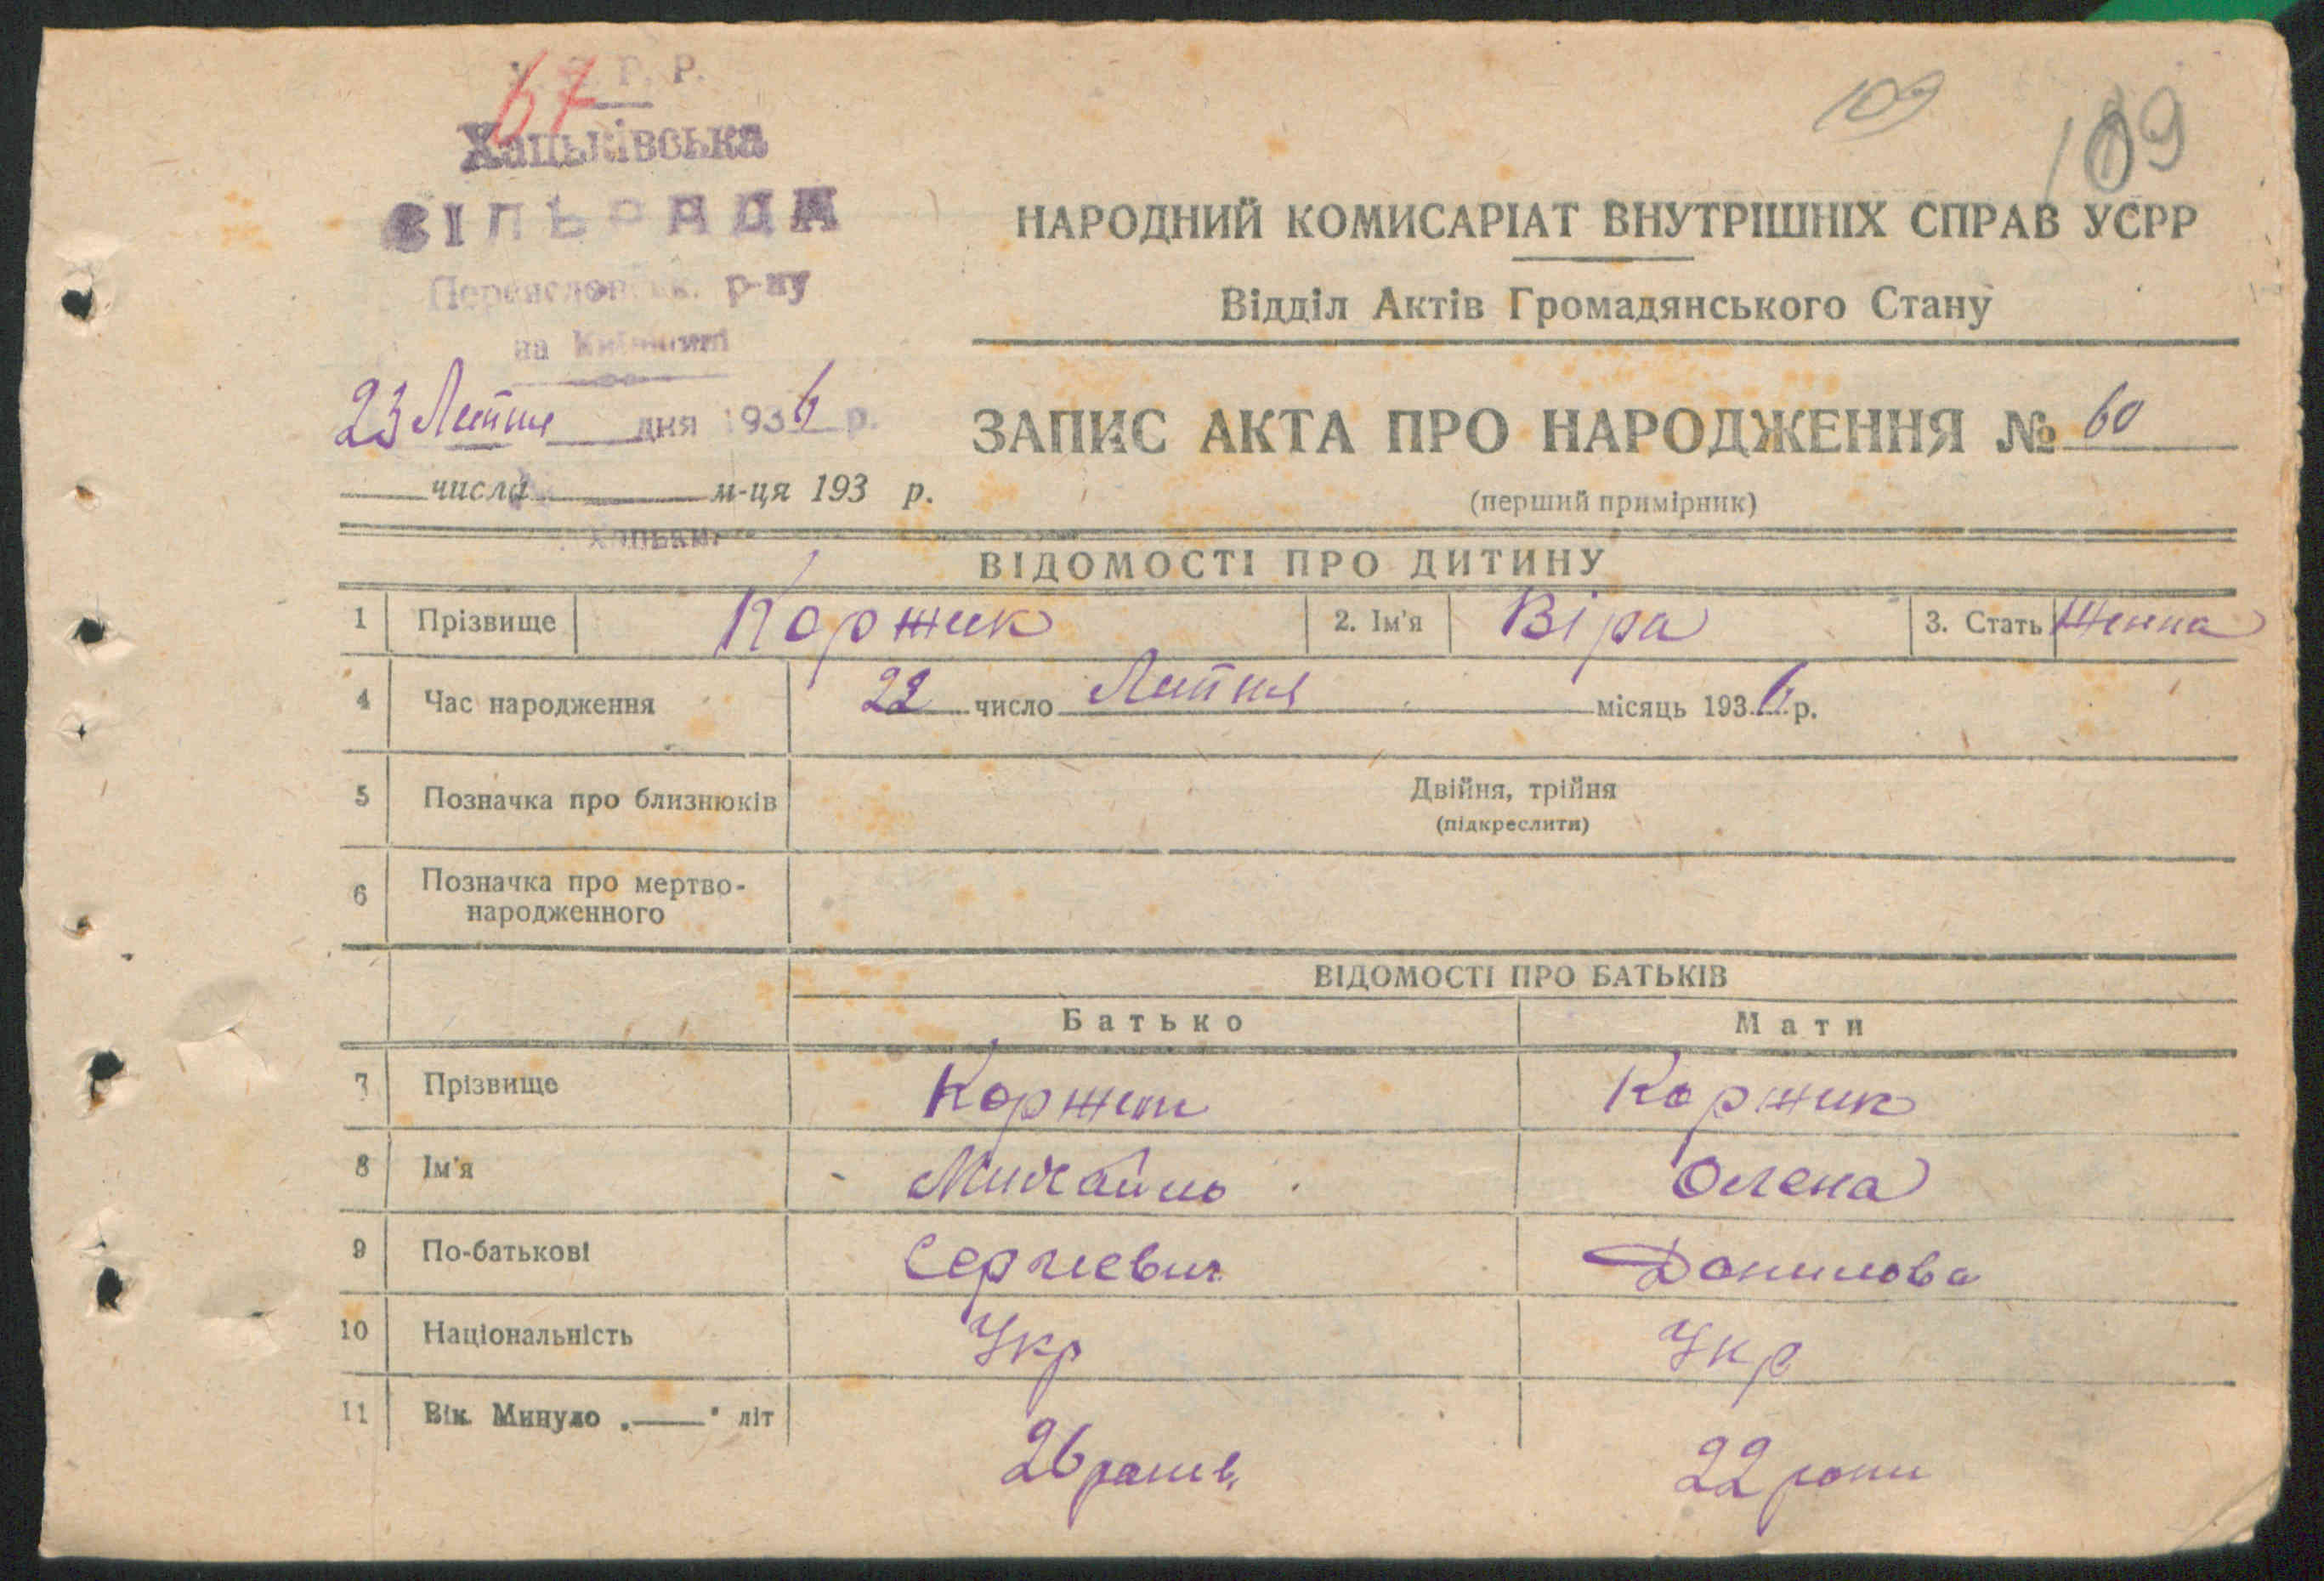 67
Р. Р.
Хацьківська
СІЛЬРАДА
р-ну
на
23 Липня дня 1936 р.
числа м-ця 193 р.
109
109
НАРОДНИЙ КОМИСАРІАТ ВНУТРІШНІХ СПРАВ УСРР
Відділ Актів Громадянського Стану
ЗАПИС АКТА ПРО НАРОДЖЕННЯ № 60
(перший примірник)
ВІДОМОСТІ ПРО ДИТИНУ
1 Прізвище Коржик 2. Ім'я Віра 3. Стать Женна
4 Час народження 22 число Липня місяць 1936 р.
5 Позначка про близнюків Двійня, трійня
(підкреслити)
6 Позначка про мертво-
народженного
ВІДОМОСТІ ПРО БАТЬКІВ
Батько Мати
7 Прізвище Коржик Коржик
8 Ім'я Михайло Олена
9 По-батькові Сергієвич Данилова
10 Національність Укр Укр
11 Вік. Минуло „ — " літ
26 років 22 роки